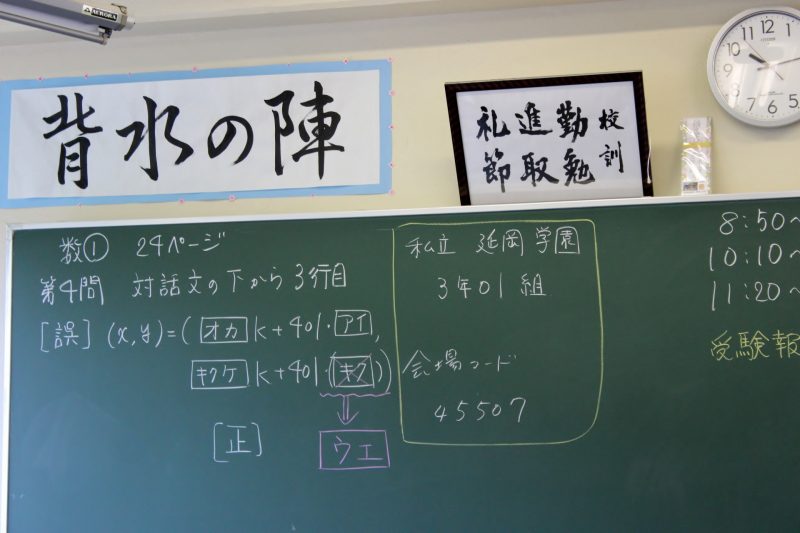 AURORA
背水の陣
校訓
勤勉
進取
礼節
12
1
2
3
4
5
6
7
8
9
10
11
CITIZEN
数① 24ページ
第4問 対話文の下から3行目
[誤] (x,y)=(オカk+401・アイ,
キクケk+401・キク)
[正] ウエ
私立 延岡学園
3年01組
会場コード
45507
8:50~
10:10~
11:20~
受験報